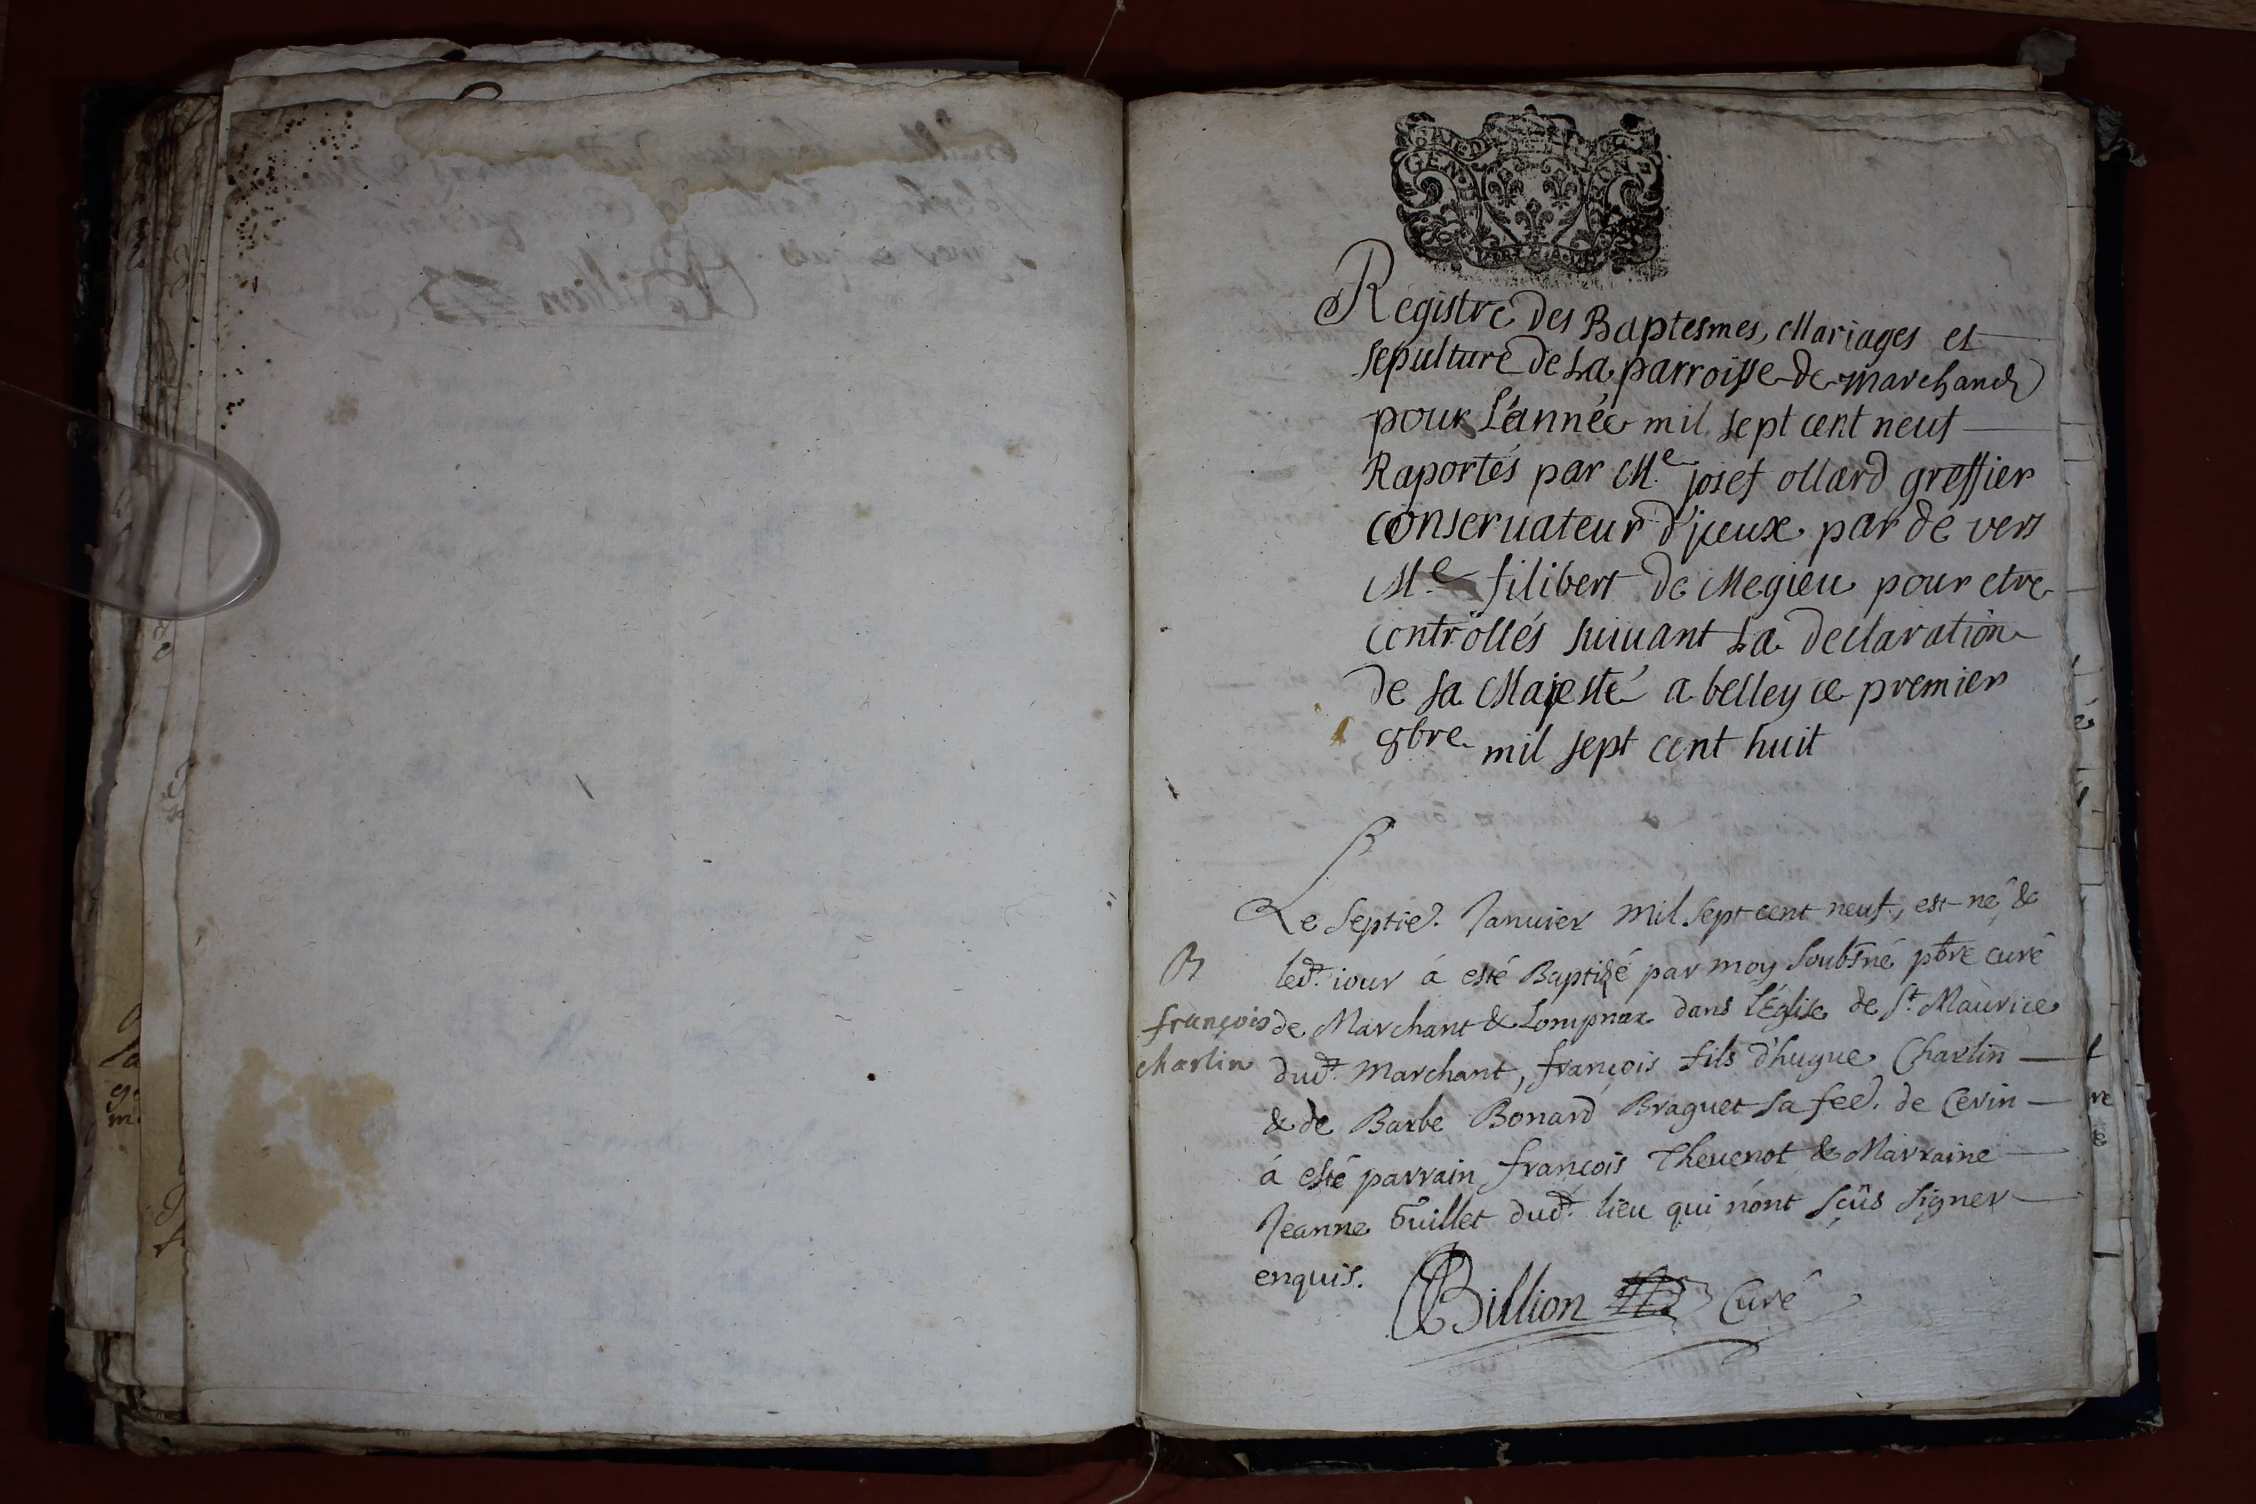 Registre Des Baptesmes, Mariages et
sepulture De La parroisse de Marchand
pour L'année mil sept cent neuf
Raportés par Me. josef ollard greffier
conseruateur d'jceux par de vers
Me. filibert de Megieu pour etre
controllés suiuant La declaration
de sa Majesté a belley ce premier
8bre. mil sept cent huit
Le Septie. Januier mil sept cent neuf, est né &
led.t iour á esté Baptizé par moy Soubs.né pbre curé
B
françois
charlin
de Marchant & Lompnax dans l'Églize de St. Maurice
dud.t Marchant, françois fils d'hugue Charlin
& de Barbe Bonard Braguet sa fee. de Cerin
á esté parrain françois Theuenot & Marraine
Jeanne Guillet dud.t lieu qui n'ont sçûs signer
enquis.
Billion Curé